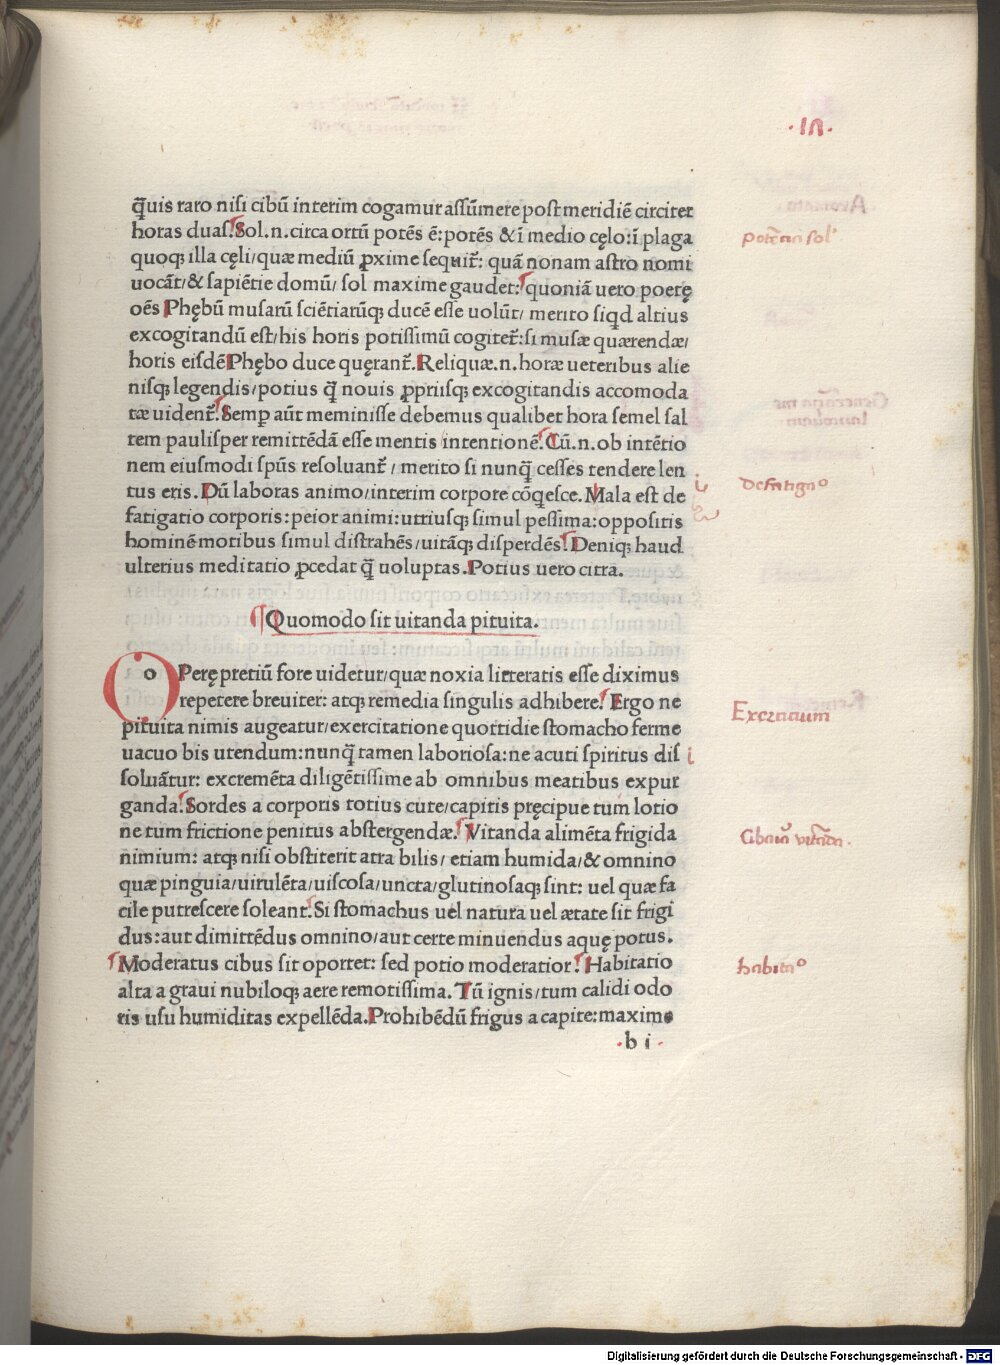 .in.
q̃uis raro nisi cibũ interim cogamur assũmere post meridiẽ circiter
horas duas. Sol.n.circa ortũ potẽs ẽ:potẽs & ĩ medio cęlo:ĩ plaga
quoqꝫ illa cęli/quæ mediũ ꝓxime sequit̃: quã nonam astro nomi
uocãt/& sapiẽtie domũ/ sol maxime gaudet: quoniã uero poetę
oẽs Phębũ musarũ sciẽtiarũqꝫ ducẽ esse uolũt/ merito siqd altius
excogitandũ est/his horis potissimũ cogitet̃:si musæ quærendæ/
horis eisdẽ Phębo duce quęrant̃. Reliquæ.n.horæ ueteribus alie
nisqꝫ legendis/potius q̃ nouis ꝓpriisqꝫ excogitandis accomoda
tæ uident̃. Semꝑ aũt meminisse debemus qualibet hora semel sal
tem paulisper remittẽdã esse mentis intentionẽ. Cũ.n.ob intẽtio
nem eiusmodi spũs resoluant̃/ merito si nunq̃ cesses tendere len
tus eris. Dũ laboras animo/interim corpore cõqesce. Mala est de
fatigatio corporis:peior animi:utriusqꝫ simul pessima:oppositis
hominẽ motibus simul distrahẽs/uitãqꝫ disperdẽs. Deniqꝫ haud
ulterius meditatio ꝓcedat q̃ uoluptas. Potius uero citra.
Quomodo sit uitanda pituita.
o Perę pretiũ fore uidetur/quæ noxia litteratis esse diximus
repetere breuiter: atqꝫ remedia singulis adhibere. Ergo ne
pituita nimis augeatur/exercitatione quottidie stomacho ferme
uacuo bis utendum:nunq̃ tamen laboriosa:ne acuti spiritus dis
soluãtur: excremẽta diligẽtissime ab omnibus meatibus expur
ganda. Sordes a corporis totius cute/capitis pręcipue tum lotio
ne tum frictione penitus abstergendæ. Vitanda alimẽta frigida
nimium: atqꝫ nisi obstiterit atra bilis/ etiam humida/& omnino
quæ pinguia/uirulẽta/uiscosa/uncta/glutinosaqꝫ sint: uel quæ fa
cile putrescere soleant. Si stomachus uel natura uel ætate sit frigi
dus:aut dimittẽdus omnino/aut certe minuendus aquę potus.
Moderatus cibus sit oportet: sed potio moderatior. Habitatio
alta a graui nubiloqꝫ aere remotissima. Tũ ignis/tum calidi odo
ris usu humiditas expellẽda. Prohibẽdũ frigus a capite:maxime
.b i.
Defatigᵒ
Exercitium
habitaᵒ
Digitalisierung gefördert durch die Deutsche Forschungsgemeinschaft - DFG